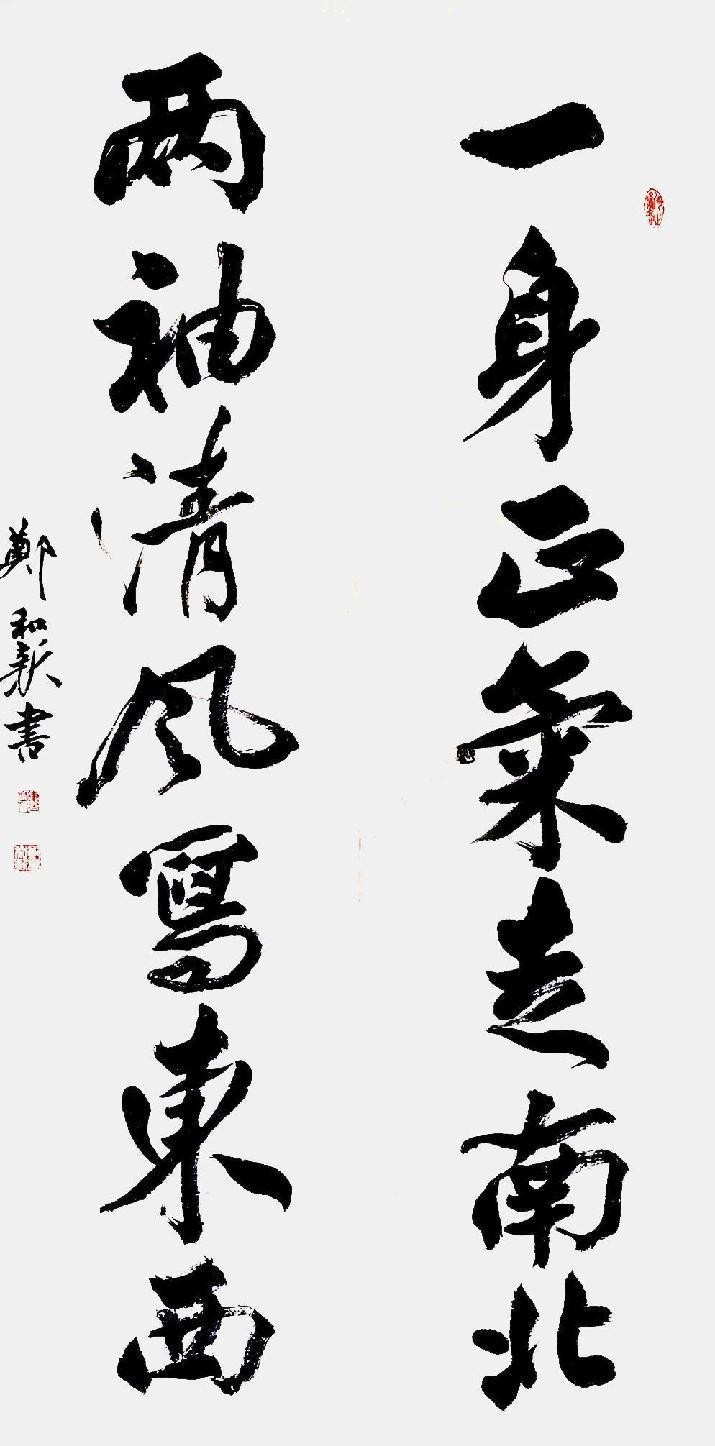 一身正氣走南北
兩袖清風寫東西
鄭和新書